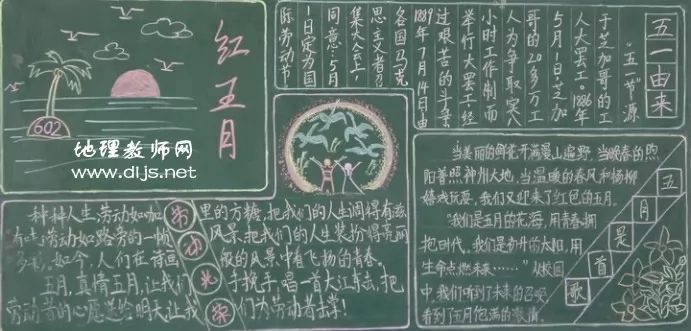 红五月
602
地理教师网
www.dljs.net
五一由来
"五一节"源
于芝加哥的工
人大罢工。1886年
5月1日芝加
哥的20多万工
人为争取实八
小时工作制而
举行大罢工经
过艰苦的斗争
1889年7月14日由
各国马克
思主义者召
集大会上
同意:5月
1日定为国
际劳动节
劳动光荣
种种人生,劳动如咖里的方糖,把我们的人生调得有滋
有味;劳动如路旁的一帧风景,把我们的人生装扮得亮丽
多彩。如今,人们在诗画般的风景中有飞扬的青春。
五月,真情五月,让我们手挽手,唱一首大江东去,把
劳动者的心愿送给明天,让我们为劳动者击掌!
五月是首歌
当美丽的鲜花开满漫山遍野,当晚春的煦
阳普照神州大地,当温暖的春风和杨柳
嬉戏玩耍,我们又迎来了红色的五月。
"我们是五月的花海,用青春拥
抱时代,我们是初升的太阳,用
生命点燃未来……"从校园
中,我们听到了未来的召唤
看到了五月饱满的激情。